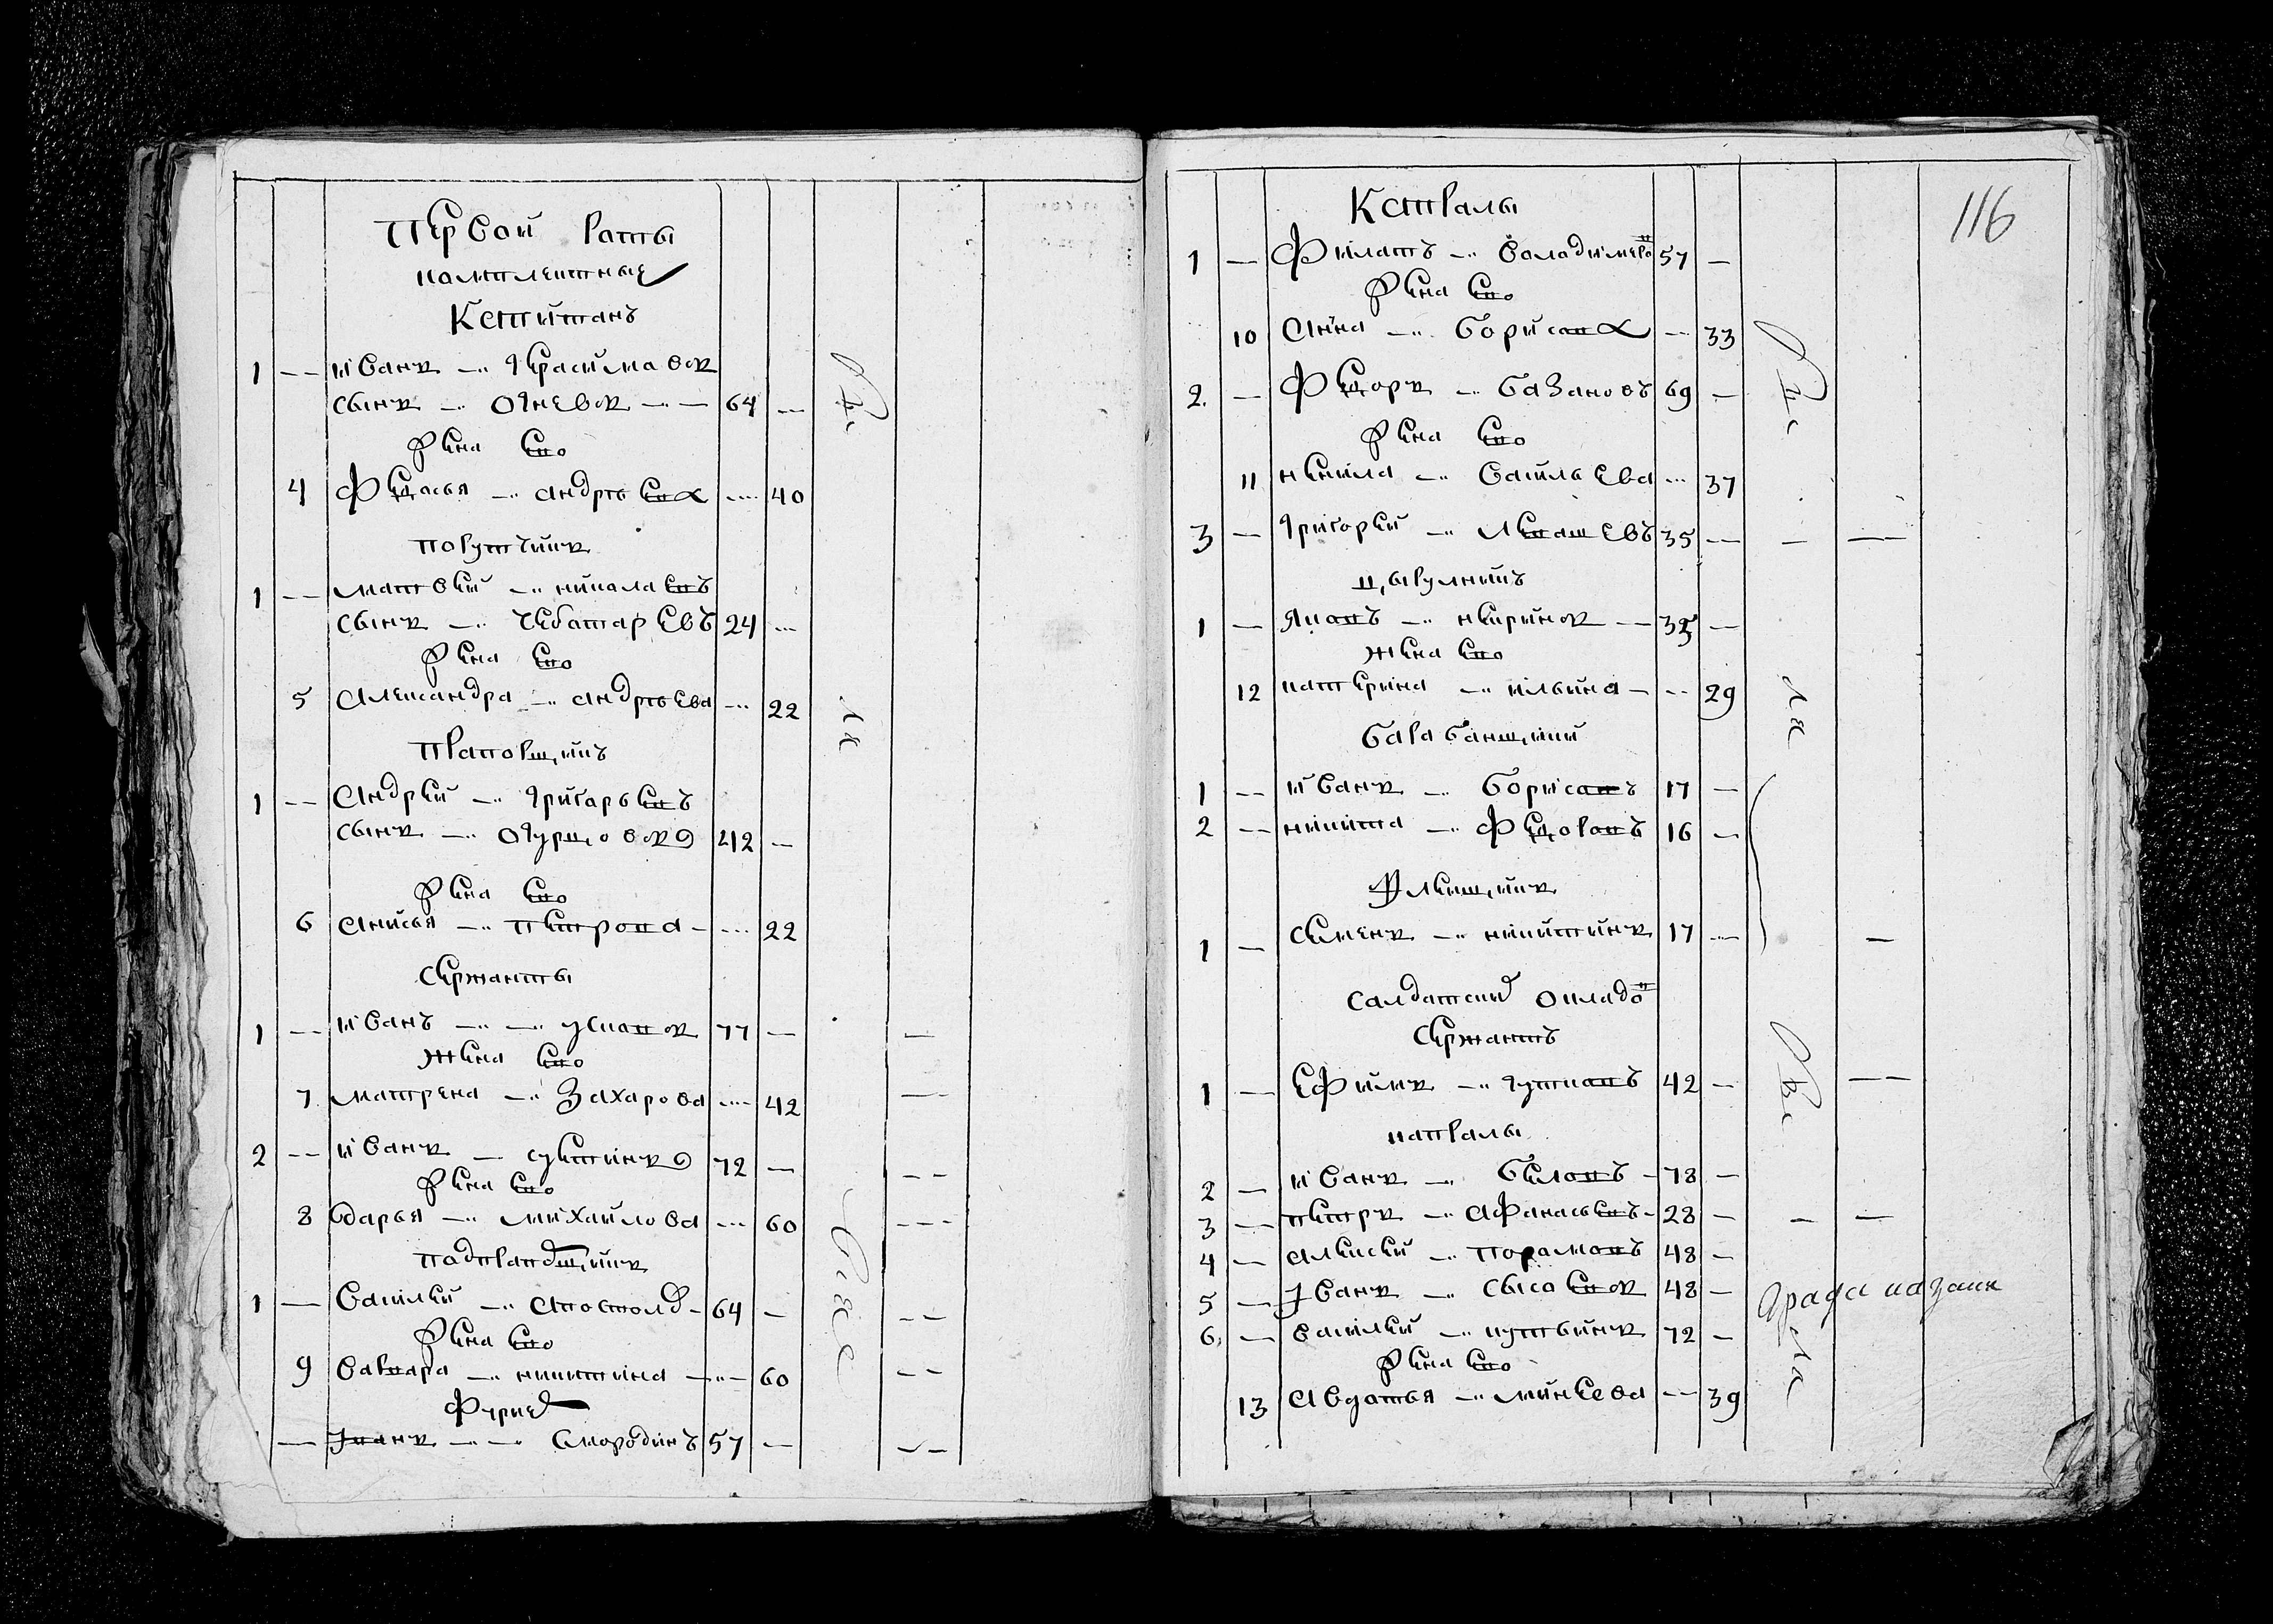 Первой роты
комплетные
Капитанъ
1 — Иванъ — Герасимовъ
сынъ — Огневъ — 64 —
Жена ево
4 Федосья — андрѣева — 40
порутчикъ
1 — матвей — никалаевъ
сынъ — Чеботаревъ 24 —
Жена ево
5 Александра — андрѣева — 22
Прапорщикъ
1 — Андрей — григорьевъ
сынъ — Огурцовъ 42 —
Жена ево
6 Анисья — петрова — 22
Сержанты
1 — Иванъ — усковъ 77 —
Жена ево
7 матрена — Захарова — 42
2 — Иванъ — 72 —
Жена ево
8 дарья — михайлова — 60
падпрапорщикъ
1 — Василей — 64 —
Жена ево
9 Варвара — никитина — 60
Фурие
— Иванъ — Смородинъ 57 —
116
Капралы
1 — Филатъ — Воладимеров 57 —
Жена ево
10 Анна — борисова — 33
2 — Федоръ — базановъ 69 —
Жена ево
11 ненила — Васильева — 37
3 — григорей — 35 — — —
цырулникъ
1 — Яковъ — 35 —
Жена ево
12 катерина — ильина — 29
барабанщики
1 — Иванъ — борисовъ 17 —
2 — никита — Федоровъ 16 —
Флейщикъ
1 — Семенъ — никитинъ 17 — —
Салдатские окладо
Сержантъ
1 — Ефимъ — гутковъ 42 — —
капралы
2 — Иванъ — беловъ — 78 —
3 — петръ — Афанасьевъ — 28 — — —
4 — алексей — 48 —
5 — Іванъ — сысоевъ 48 —
6 — василей — 72 —
Жена ево
13 Авдотья — минеева — 39
града казани